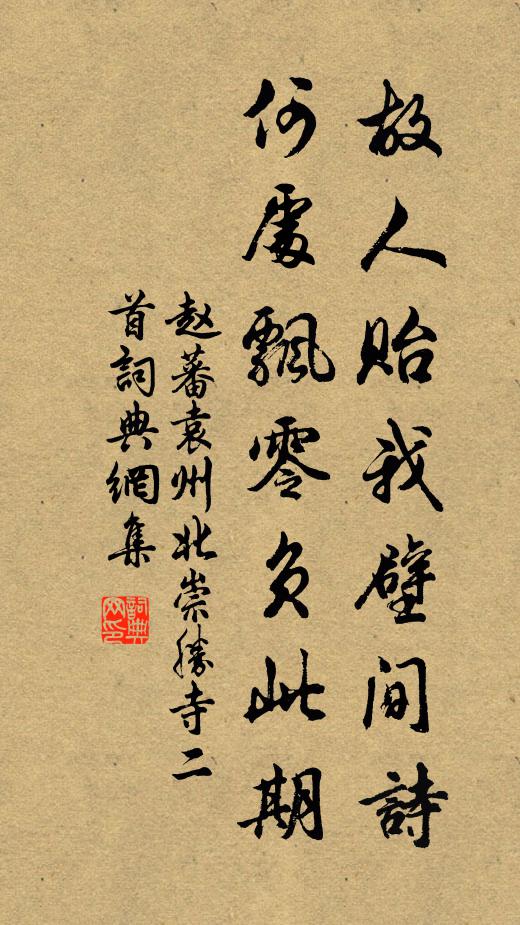 故人貽我壁間詩
何處飄零負此期
赵蕃袁州北崇勝寺二
首詞典網集
詞典
网印